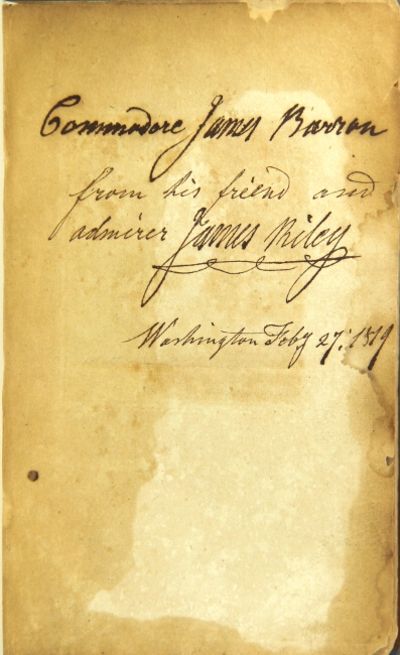 Commodore James Barron
from his friend and
admirer James Riley
Washington Feby 27: 1819